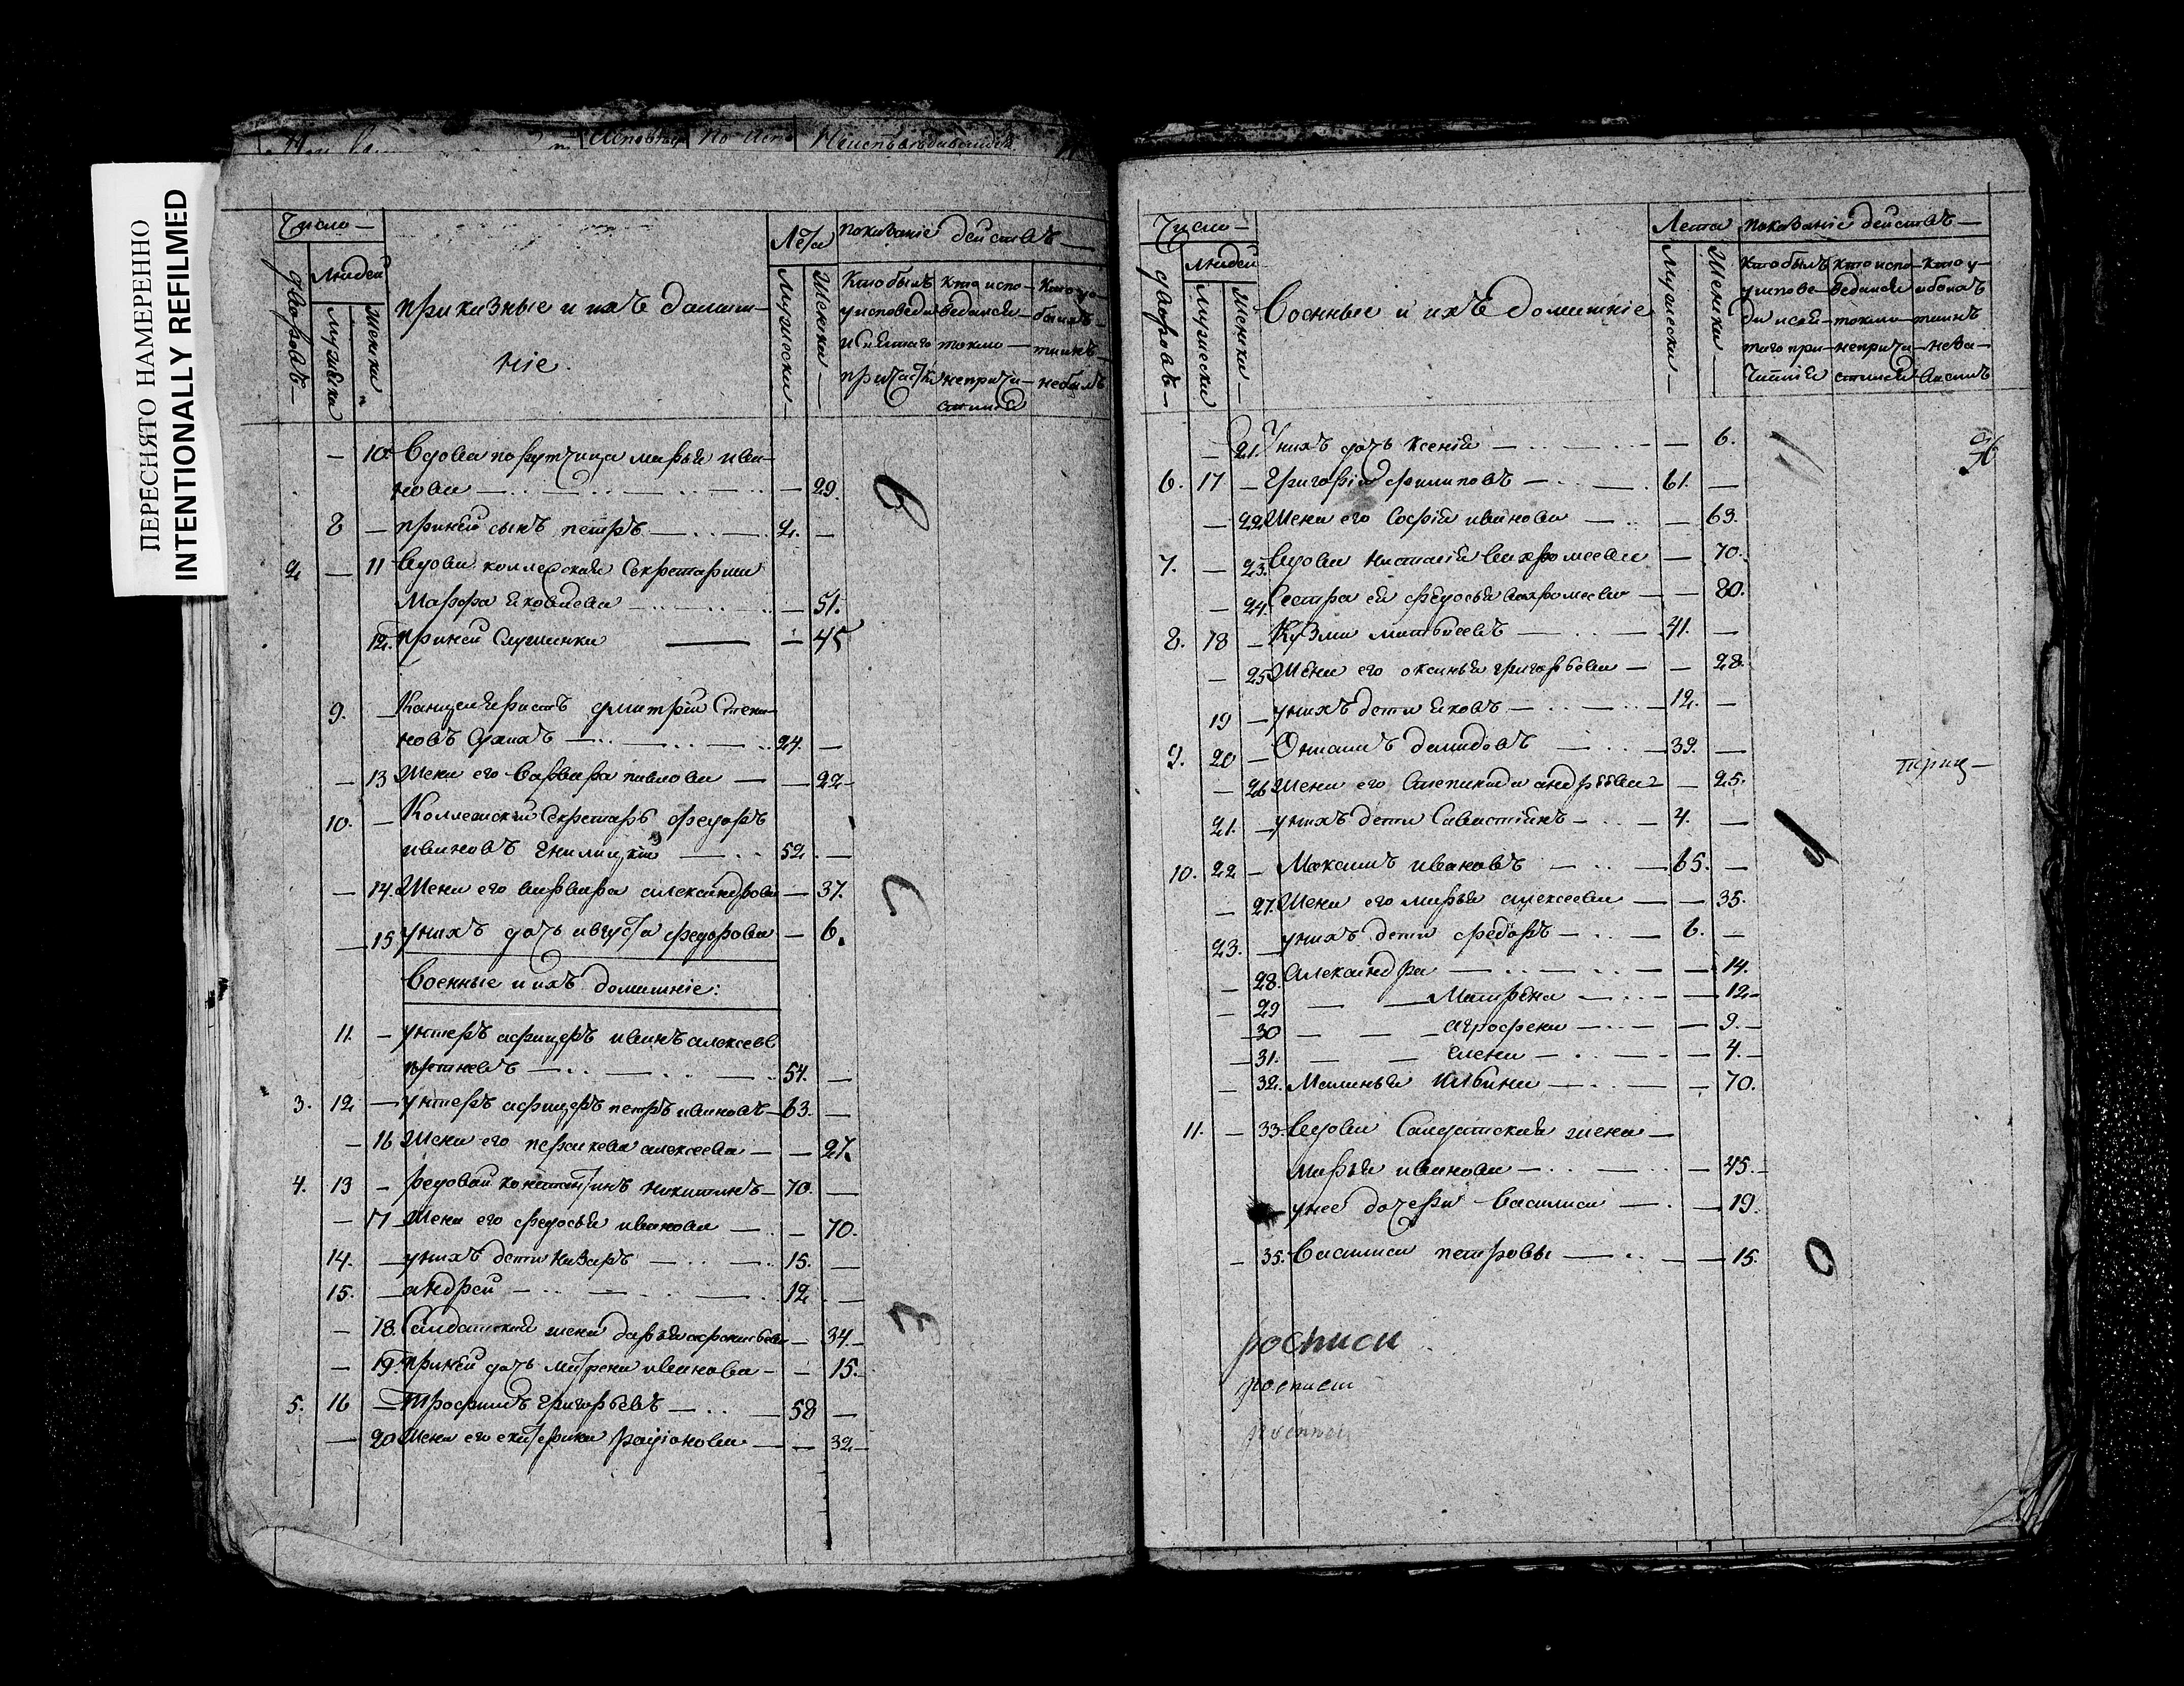 ПЕРЕСНЯТО НАМЕРЕННО
INTENTIONALLY REFILMED
Число
Лета показаніе действъ
дворовъ
людей
мужеска
женска
приказные и ихъ домаш-
ніе.
мужеска
женска
Кто былъ
у исповеди
и святаго
причастія
кто испо-
ведался
токмо
неприча-
стился
не былъ
— 10. вдова порутчица марья ива-
нова — 29.
8 — при ней сынъ петръ — 2. —
2. — 11 вдова коллежская секретарша
Марфа яковлева — 51.
12. при ней служанка — 45
9. — Канцеляристъ дмитрій степа-
новъ — 24. —
— 13 Жена его варвара павлова — 22
10. — Коллежскій секретарь федоръ
ивановъ гнилицкій — 52. —
— 14. Жена его варвара александрова — 37.
— 15 у нихъ дочь августа федорова — 6.
Военные и ихъ домашніе:
11. — унтеръ афицеръ иванъ алексеевъ
— 54. —
3. 12. — унтеръ афицеръ петръ ивановъ — 63. —
— 16 Жена его алексеева — 27.
4. 13 — редовой константинъ никитинъ — 70. —
— 17 Жена его федосья иванова — 70.
14. — у нихъ дети назаръ — 15. —
15. — андрей — 12. —
— 18. Салдатская жена дарья — 34.
— 19. при ней дочь матрена иванова — 15.
5. 16 — Трофимъ григорьевъ — 58 —
— 20 Жена его екатерина радіонова — 32
Число
Лета показаніе действъ
дворовъ
людей
мужеска
женска
Военные и ихъ домашніе
мужеска
женска
кто былъ
у испове-
ди и свя-
таго при-
частія
кто испо-
ведался
токмо
неприча-
стился
кто у
— 21. У нихъ дочь Ксенія — 6.
6. 17 — Григорій филиповъ — 61. —
— 22 Жена его Софія иванова — 63.
7. — 23. вдова наталія вахромеева — 70.
— 24. Сестра ея федосья вахромеева — 80.
8. 18 — Кузма матвеевъ — 41. —
— 25 Жена его оксинья григорьева — 28.
19 — у нихъ дети яковъ — 12. —
9. 20 — демидовъ — 39. —
— 26 Жена его степанида андреева — 25.
21. — у нихъ дети Савастіянъ — 4. —
10. 22 — Максимъ ивановъ — 65. —
— 27. Жена его марья алексеева — 35.
23. — у нихъ дети федоръ — 6. —
— 28. александра — 14.
— 29 Матрена — 12
— 30 агрофена — 9.
— 31. елена — 4.
— 32. Маланья Ильина — 70.
11. — 33. вдова Салдатская жена
марья иванова — 45.
у нее дочери василиса — 19.
— 35. василиса петровы — 15.
росписи
росписи